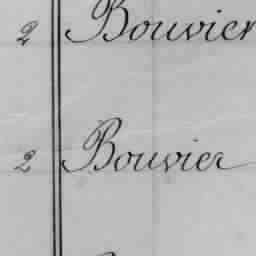 2 Bouvier
2 Bouvier